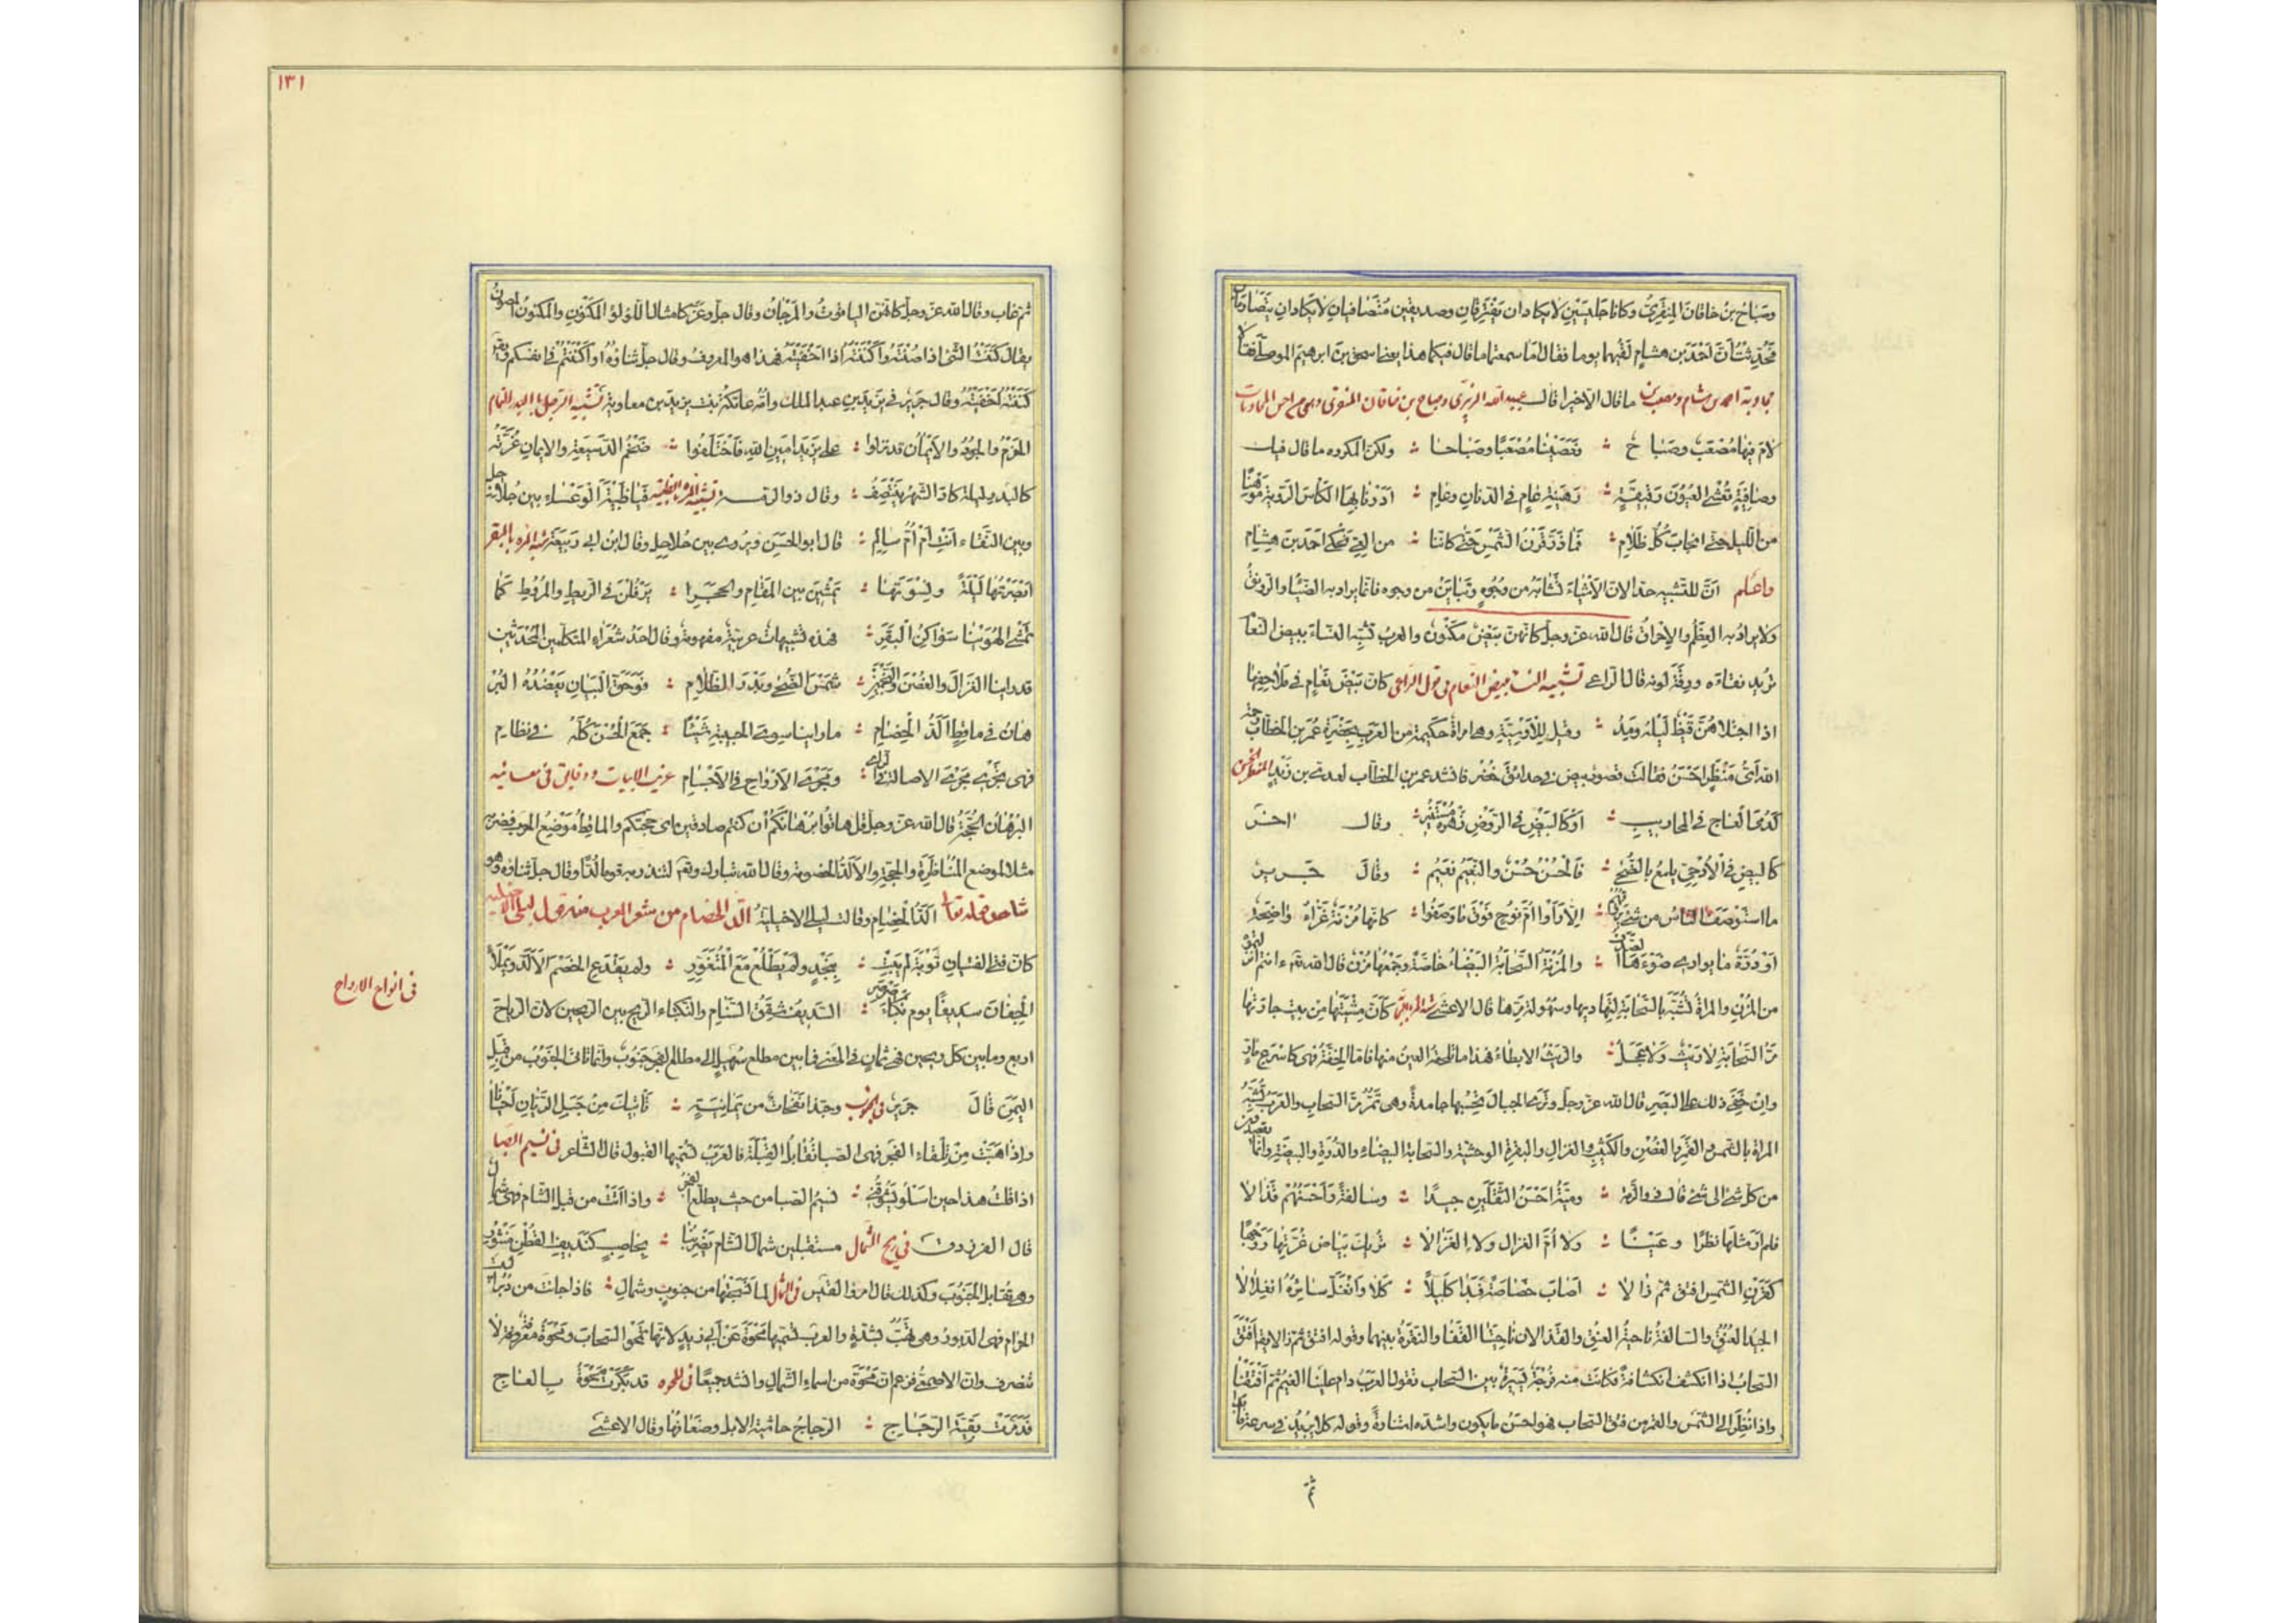 وصباح بن خاقان المنقري وكانا جليسين لا يكادان يفترقان وصديقين متصافيان لا يكادان يتصارمان
فحدثت أن أحمد بن هشام لقيهما يوما فقال أما سمعتما ما قال فيكما هذا يعنا إسحق بن إبرهيم الموصلي فقالا
ما قال الا خيرا قال
لام فيها مصعب وصباح ؞ فعصينا مصعبا وصباحا ؞ ولكن المكروه ما قال فيك
وصافية تعشي العيون رقيقة ؞ رهينة عام في الدنان وعام ؞ ادرنا بها الكأس الروية موهنا
من الليل حتى انجاب كل ظلام ؞ فما ذر قرن الشمس حتى كاننا ؞ من العي نحكي احمد بن هشام
واعلم ان للتشبيه حدا لان الاشياء تشابه من وجوه وتباين من وجوه فانما يراد به الضياء والرونق
ولا يراد به العظم والاحراق قال الله عز وجل كانهن بيض مكنون والعرب تشبه النساء ببيض النعام
تريد نقاءه ورقة لونه قال الراعي تشبيه النساء ببيض النعام في قول الراعي كان بيض نعام في ملاحفها
اذا اجتلاهن قيظ ليله ومد ؞ وقيل للاوسية وهي امراة حكيمة من العرب بحضرة عمر بن الخطاب
اي منظر احسن فقالت قصور بيض في حدائق خضر فانشد عمر بن الخطاب لعدي بن زيد
كدمى العاج في المحاريب ؞ او كالبيض في الروض زهره مستنير ؞ وقال اخر
كالبيض في الادحي يلمع بالضحى ؞ فالحسن حسن والنعيم نعيم ؞ وقال جرير
ما استوصف الناس من شئ ؞ الا راوا ام نوح فوق ما وصفوا ؞ كانها مزنة غراء واضحة
او درة ما يواري ضوءها الصدف ؞ والمزنة السحابة البيضاء خاصة وجمعها مزن قال الله ءانتم انزلتموه
من المزن والمراة تشبه بالسحابة لتهاديها وسهولة مرها قال الاعشى كان مشيتها من بيت جارتها
مر السحابة لا ريث ولا عجل ؞ والريث الابطاء فهذا ما تلحقه العين منها فاما الخفة فهي كاسرع مار
وان خفي ذلك على البصر قال الله عز وجل وترى الجبال تحسبها جامدة وهي تمر مر السحاب والعرب تشبه
المراة بالشمس والقمر والغصن والكثيب والغزال والبقرة الوحشية والسحابة البيضاء والدرة والبيضة وانما تقصد
من كل شئ الى شئ قال ذو الرمة ؞ ومية احسن الثقلين جيدا ؞ وسالفة واحسنهم قذالا
فلم ار مثلها نظرا وعينا ؞ ولا ام الغزال ولا الغزالا ؞ تريك بياض غرتها ووجها
كقرن الشمس افتق ثم زالا ؞ اصاب خصاصة فبدا كليلا ؞ كلا وانغل سائره انغلالا
الجيد العنق والسالفة ناحية العنق والقذالان ناحيتا القفا والنقرة بينهما وقوله افتق ثم زالا يقال افتق
السحاب اذا انكشف انكشافة فكانت منه فرجة يسيرة بين السحاب تقول العرب دام علينا الغيم ثم افتقنا
واذا نظر الى الشمس والقمر من فتق السحاب فهو احسن ما يكون واشده استنارة وقوله كلا يريد في سرعة ما بدا
ثم
١٣١
ثم غاب وقال الله عز وجل كانهن الياقوت والمرجان وقال جل وعز كامثال اللؤلؤ المكنون والمكنون المصون
يقال كننت الشئ اذا صنته واكننته اذا اخفيته فهذا هو المعروف وقال جل ثناؤه او اكننتم في انفسكم
كننته اخفيته وقال جرير في يزيد بن عبد الملك وامه عاتكة بنت يزيد بن معاوية تشبيه الرجل بالبدر التمام
الحزم والجود والايمان قد نزلوا ؞ على يزيد امين الله فاختلفوا ؞ ضخم الدسيعة والايمان غرته
كالبدر ليلة كاد الشهر ينتصف ؞ وقال ذو الرمة فيا ظبية الوعساء بين جلاجل
وبين النقاء انت ام ام سالم ؞ قال ابو الحسن ويروى بين حلاحل وقال ابن ابي ربيعة
ابصرتها ليلة ونسوتها ؞ يمشين بين المقام والحجر ؞ يرفلن في الريط والمروط كما
تمشي الهوينا سواكن البقر ؞ فهذه تشبيهات عربية مفهومة وقال احد شعراء المتكلمين المحدثين
قد راينا الغزال والغصن والنجم ؞ شمس الضحى وبدر الظلام ؞ فوحق البيان يعضده البر
هان في ماقط الد الخصام ؞ ما راينا سوى الحبيبة شيئا ؞ جمع الحسن كله في نظام
فهي تجري مجرى الاصالة في الراي ؞ ومجرى الارواح في الاجسام غريب الابيات ودقايق في معانيه
البرهان الحجة قال الله عز وجل قل هاتوا برهانكم ان كنتم صادقين اي حججكم والماقط موضع الحرب فضرب
مثلا لموضع المناظرة والحجة والالد الخصومة وقال الله تبارك وتعم لتنذر به قوما لدا وقال جل ثناؤه وهو
الد الخصام وقالت ليلى الاخيلية
كان فتى الفتيان توبة لم يبت ؞ بنجد ولم يطلع مع المتغور ؞ ولم يقدع الخصم الالد ويملأ
الجفان سديفا يوم نكباء صرصر ؞ السديف شقق السنام والنكباء الريح بين الريحين لان الرياح
اربع وما بين كل ريحين فهي ثمان في المعنى فما بين مطلع سهيل الى مطلع الفجر جنوب وانما تاتي الجنوب من قبل
اليمن قال جرير في الجنوب وحبذا نفحات من يمانية ؞ تاتيك من جبل الريان احيانا
واذا هبت من تلقاء الفجر فهي الصبا تقابل القبلة فالعرب تسميها القبول قال الشاعر في نسيم الصبا
اذا قلت هذا حين اسلو يشوقني ؞ نسيم الصبا من حيث يطلع الفجر ؞ واذا اتت من قبل الشام فهي شمال
قال الفرزدق في ريح الشمال مستقبلين شمال الشام تضربنا ؞ بحاصب كنديف القطن منثور
وهي تقابل الجنوب وكذلك قال امرؤ القيس لما نسجتها من جنوب وشمال ؞ فاذا جاءت من دبر البيت
الحرام فهي الدبور وهي تهب بشدة والعرب تسميها محوة عن ابي زيد لانها تمحو السحاب ومحوة معرفة لا
تنصرف وان الاصمعي فزعم ان محوة من اسماء الشمال وانشد جميعا قد بكرت محوة بالعجاج
فدمرت بقية الرجاج ؞ الرجاج حاشية الابل وضعافها وقال الاعشى
في انواع الارواح